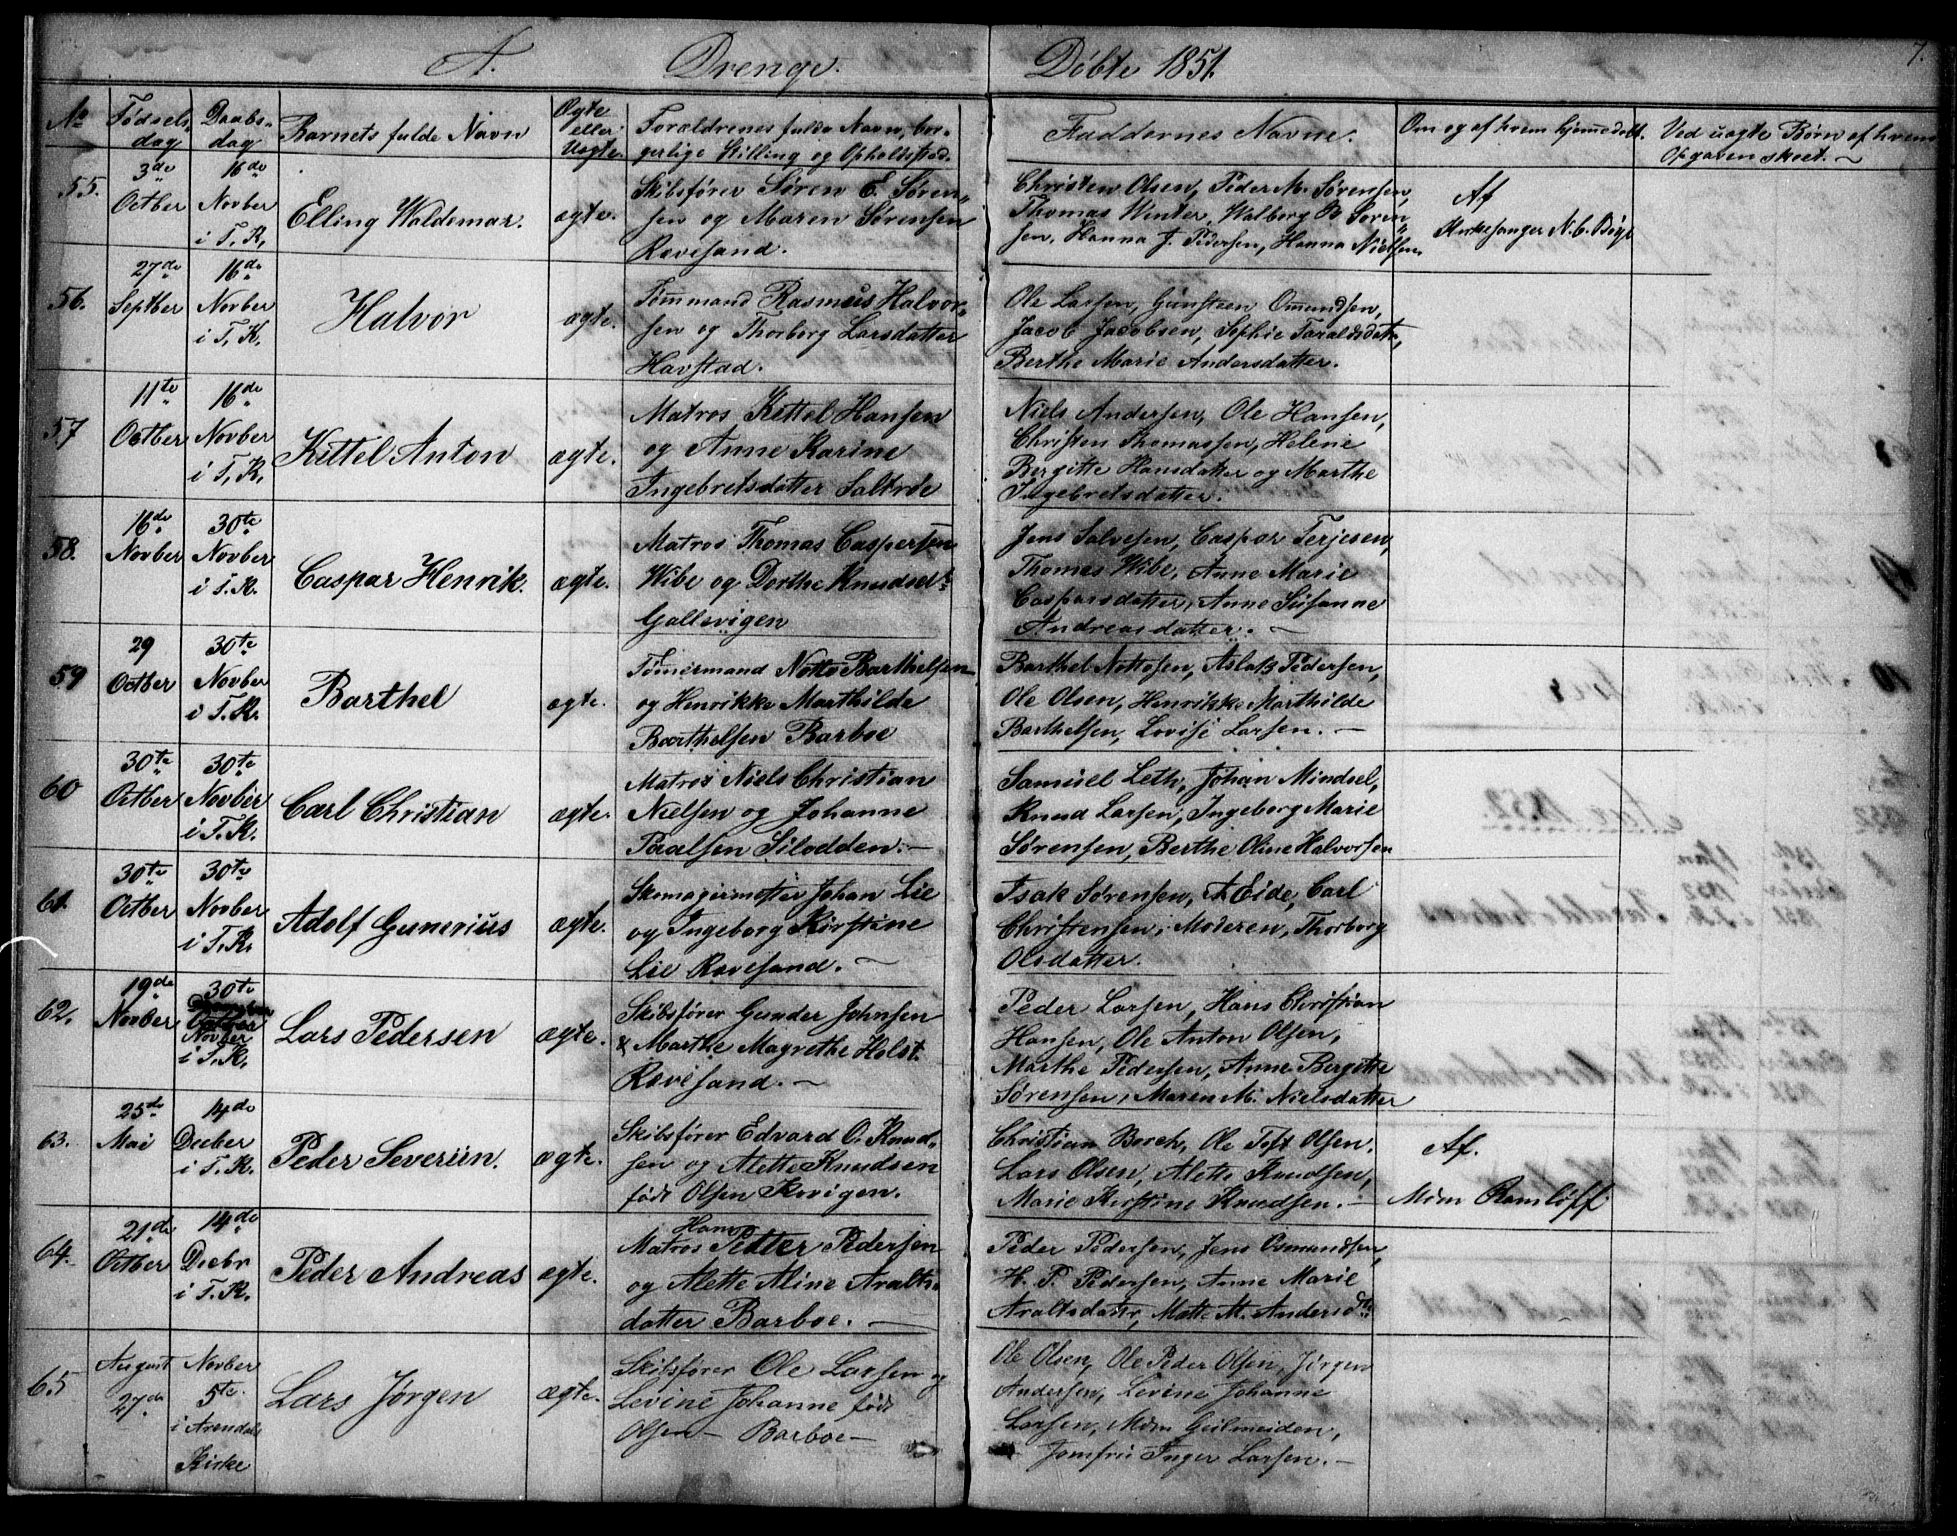 A. Drenge. Døbte 1851. 7.
No Fødsels- Daabs- Barnets fulde Navn Ægte Forældrenes fulde Navn, bor- Faddernes Navne. Om og af hvem hjemmedøbt. Ved uægte Børn af hvem
dag dag eller Uægte. gerlige Stilling og Opholdssted. Opgaven skeet.
55. 3de Octber 16de Novber i T. K. Elling Waldemar. ægte.
Skibsfører Søren E. Søren-
sen og Maren Sørensen
Revesand.
Christen Olsen, Peder M. Sørensen,
Thomas Winter, Walborg B. Søren-
sen, Hanna J. Pedersen, Hanna Nielsen
Af
Kirkesanger N. C. Bøye
56. 27de Septber 16de Novber i T. K. Halvor ægte.
Tømmand Rasmus Halvor-
sen og Thorborg Larsdatter
Havstad.
Ole Larsen, Gunsteen Omundsen,
Jacob Jacobsen, Sophie Taraldsdatr,
Berthe Marie Andersdatter.
57 11te Octber 16de Novber i T. K. Kittel Anton ægte.
Matros Kittel Hansen
og Anne Karine
Ingebretsdatter Saltrøe
Niels Andersen, Ole Hansen,
Christen Thomassen, Helene
Bergitte Hansdatter og Marthe
Ingebretsdatter.
58. 16de Novber 30te Novber i T. K. Caspar Henrik. ægte.
Matros Thomas Caspersen
Wibe og Dorthe Knudsdtr
Gallevigen
Jens Salvesen, Caspar Terjesen,
Thomas Wibe, Anne Marie
Caspersdatter, Anne Susanne
Andreasdatter.
59 29 Octber 30te Novber i T. K. Barthel ægte.
Tømermand Notto Barthelsen
og Henrikke Marthilde
Barthelsen Barboe
Barthel Nottosen, Aslak Pedersen,
Ole Olsen, Henrikke Marthilde
Barthelsen, Lovise Larsen.
60 30te Octber 30te Novber i T. K. Carl Christian ægte.
Matros Niels Christian
Nielsen og Johanne
Taralsen Silodden.
Samuel Leth, Johan Mindsel,
Knud Larsen, Ingeborg Marie
Sørensen, Berthe Oline Halvorsen
61. 30te Octber 30te Novber i T. K. Adolf Gunerius ægte.
Skomagermester Johan Lie
og Ingeborg Kirstine
Lie Revesand.
Isak Sørensen, A. Eide, Carl
Christensen, Moderen, Thorborg
Olsdatter.
62. 19de Novber 30te Novber i T. K. Lars Pedersen ægte.
Skibsfører Gunder Johnsen
& Marthe Magrethe Holst
Revesand.
Peder Larsen, Hans Christian
Hansen, Ole Anton Olsen,
Marthe Pedersen, Anne Bergitte
Sørensen, Maren M. Nielsdatter
63. 25de Mai 14de Decber i T. K. Peder Severiin. ægte.
Skibsfører Edvard O. Knud-
sen og Alette Knudsen
født Olsen Kovigen.
Christian Borch, Ole Toft Olsen.
Lars Olsen, Alette Knudsen,
Marie Kirstine Knudsen.
Af.
Mdm Ramløff
64. 21de Octber 14de Decbr i T. K. Peder Andreas ægte.
Matros Hans Petter Pedersen
og Alette Aline Aralts-
datter Barboe.
Peder Pedersen, Jens Osmundsen,
H. P. Pedersen, Anne Marie
Araltsdatter, Mette M. Andersdtr
65 August 27de Novber 5te i Arendals Kirke Lars Jørgen ægte.
Skibsfører Ole Larsen og
Levine Johanne født
Olsen – Barboe –
Ole Olsen, Ole Peder Olsen, Jørgen
Andersen, Levine Johanne
Larsen, Mdm Gulmeiden,
Jomfru Inger Larsen.